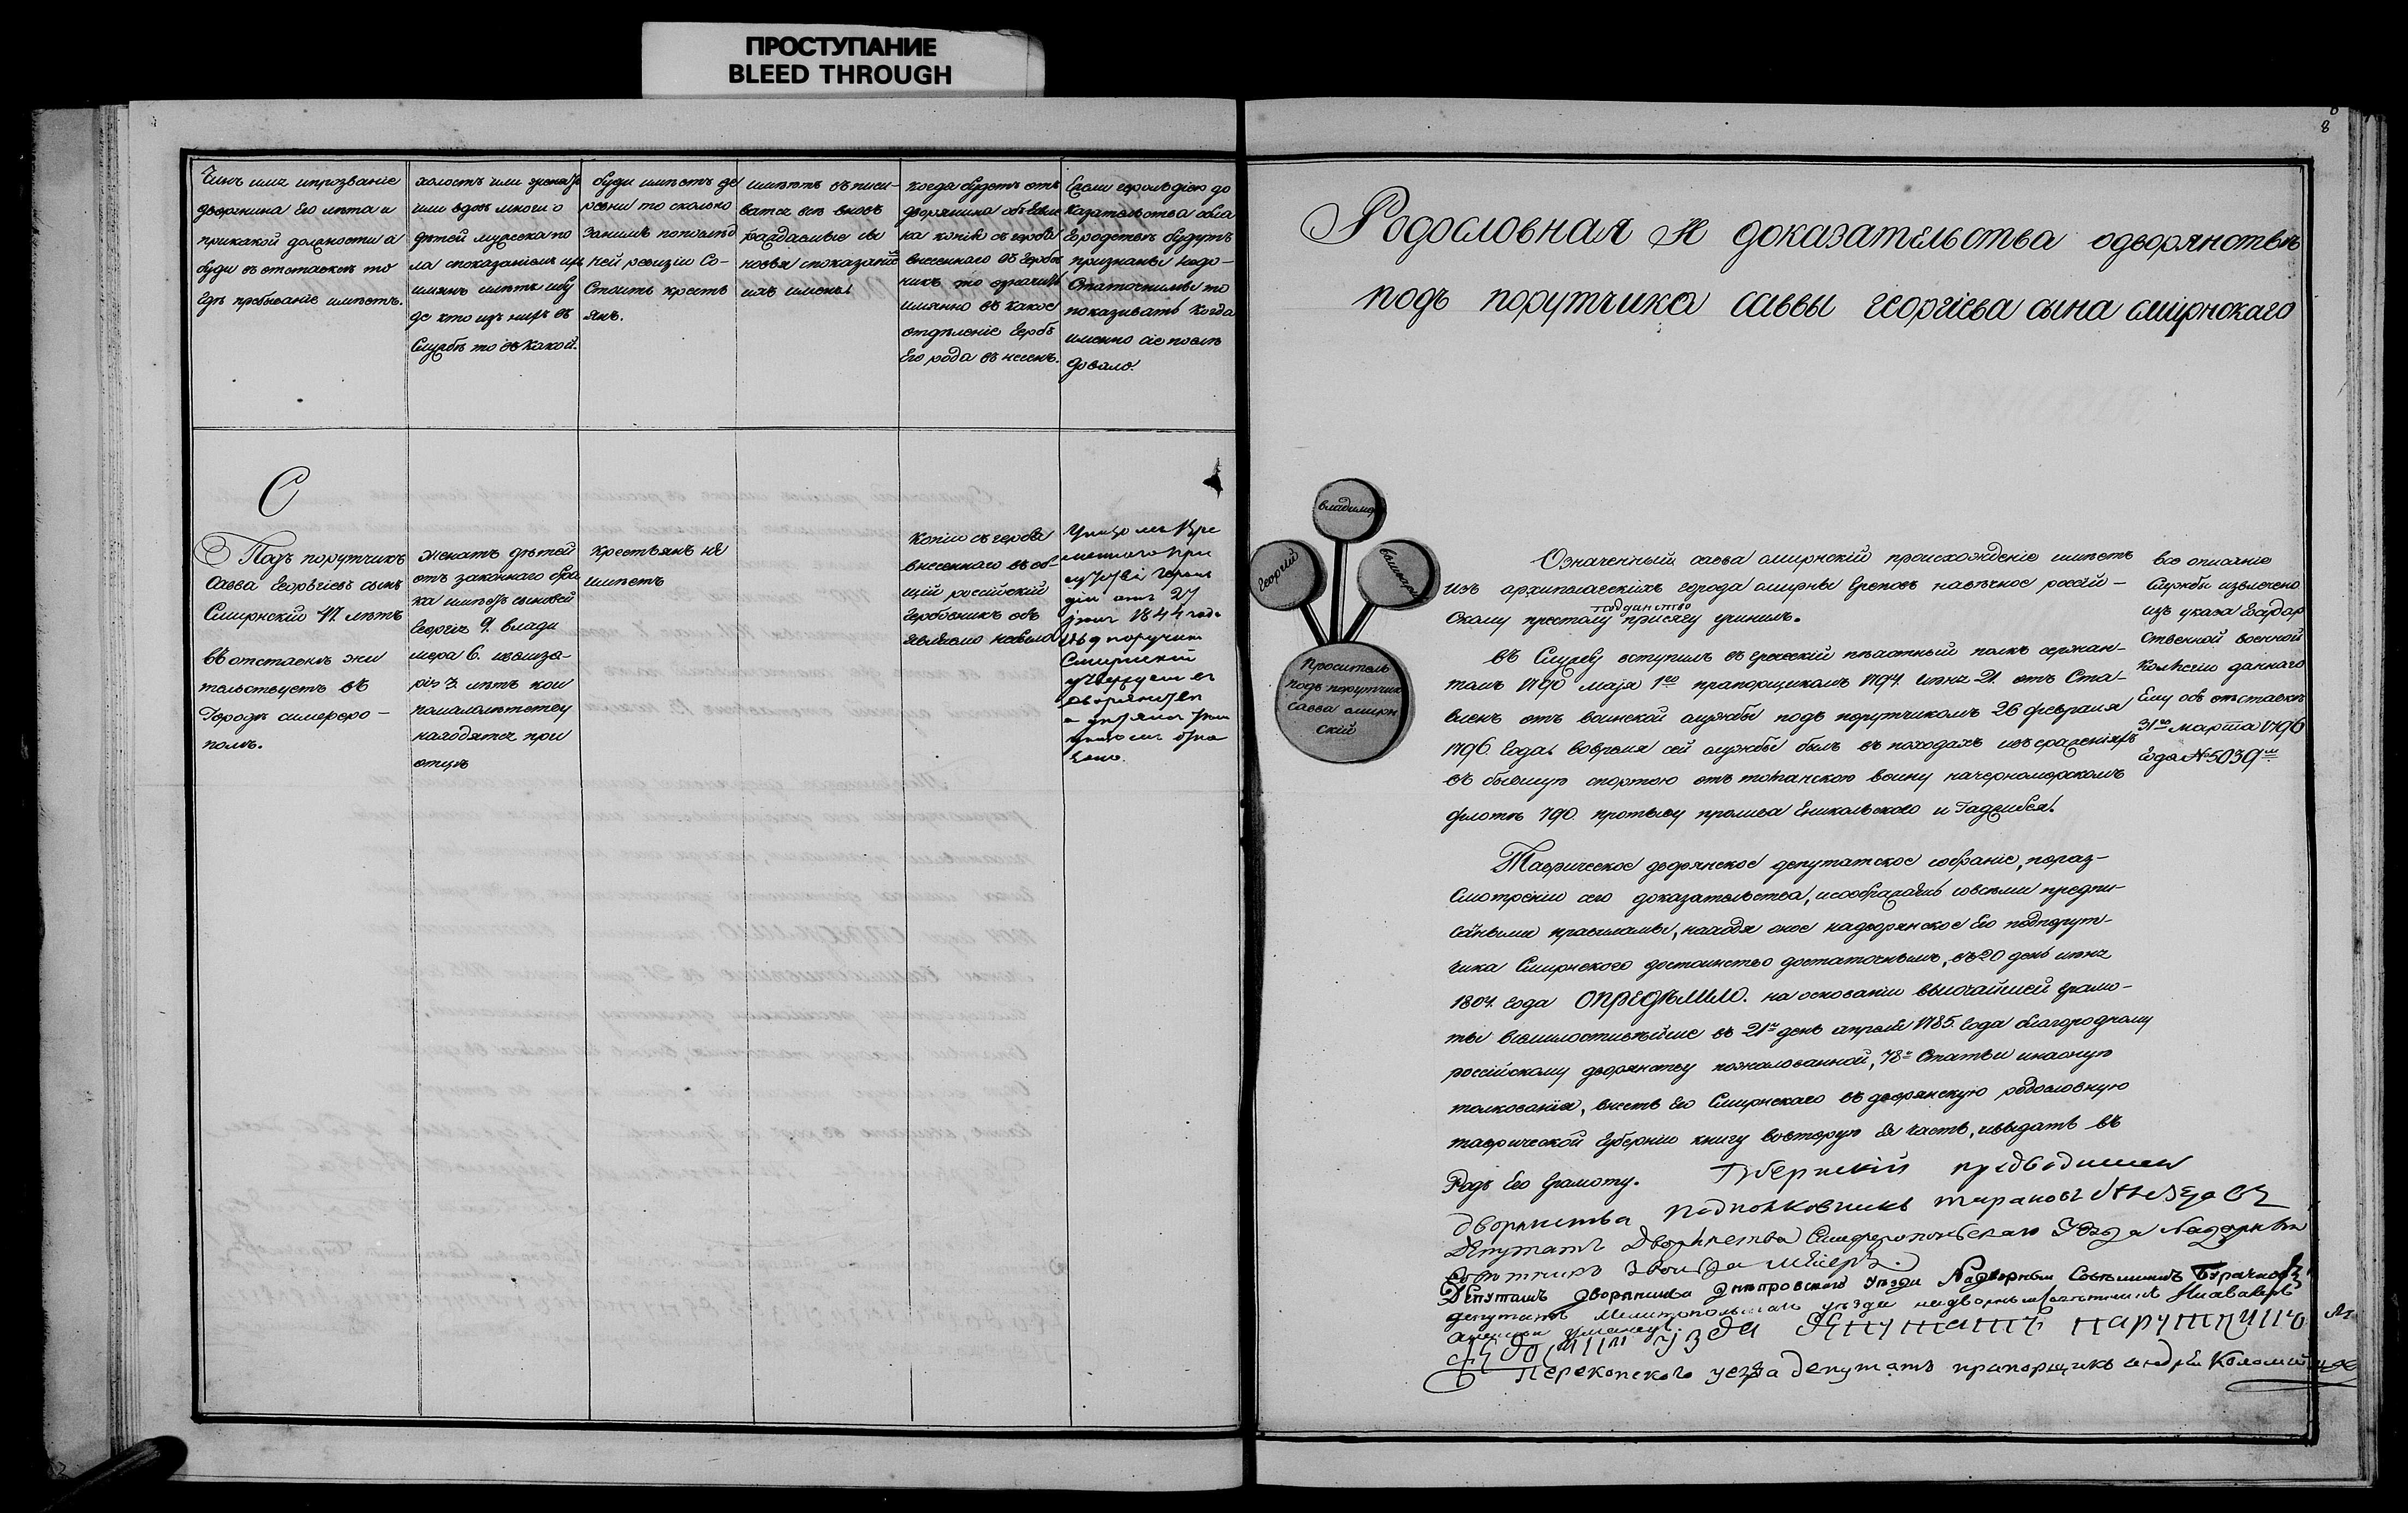 ПРОСТУПАНИЕ
BLEED THROUGH
8
Чинъ имя ипрозваніе
дворянина Его лѣта и
прикакой должности а
буди въ отставкѣ то
Гдѣ пребываніе имѣетъ.
холостъ или женатъ
или вдовъ многи о
дѣтей мужеска по
ла споказаніемъ ихъ
имянъ илѣтъ ибу
де кто изъ нихъ въ
Службѣ то въ какой.
буди имѣетъ де
ревни то сколько
Занимъ попослѣд
ней ревизіи Со-
Стоитъ крестъ
янъ.
имѣютъ въписи-
ватся всѣ вновь
раждаемые сы
новья споказаніе
ихъ имены
когда будетъ отъ
дворянина объявле
на копія съ герба
внесеннаго въ Гербов
никъ, то означить
имянно въ какое
отдѣленіе Гербъ
Его рода въ несенъ.
Если герольдіею до
казательства обла
городствѣ будутъ
признаны недо-
Статочными то
показивать когда
именно сіе послѣ
довало.
С
Подъ порутчикъ
Савва Георгіевъ сынъ
Смирнскій 47. лѣтъ
въ отставкѣ жи
тельствуетъ въ
Городѣ симферо-
полѣ.
женатъ дѣтей
отъ законнаго бра
ка имѣетъ сыновей
Георгія 9. влади
мера 6. ивилиза-
рія 3. лѣтъ кои
помалолѣтству
находятся при
отцѣ
крестьянъ не
имѣетъ
копіи съ герба
внесеннаго въ об-
щій россійскій
Гербовникъ объ
являемо небыло
Указомъ Вре
меннаго при
сутствія Героль
діи отъ 27
1844 года
подпоручикъ
Смирнскій
утвержденъ въ
дворянствѣ
Родословная И доказательства одворянствѣ
подъ порутчика саввы георгіева сына смирнскаго
владимеръ
Георгій
Проситель
подъ порутчик
Савва смирн
скій
Означенный савва смирнскій происхожденіе имѣетъ
изъ архипелагскихъ города смирны Грековъ навѣчное россій-
подданство
скому престолу присягу учинилъ.
въ Службу вступилъ въ греческій пѣхотный полкъ сержан-
томъ 1790 маія 1го прапорщикомъ 1794. іюня 21. отъ Ста-
вленъ отъ воинской службы подъ порутчикомъ 26 февраля
1796. Года. вовремя сей службы былъ въ походахъ исъраженіяхъ
въ бывшую спортою отъ томанскою воину начерноморскомъ
флотѣ 790. противу пролива Еникольского и Гаджибея.
все описаніе
Службы извлечено
изъ указа Государ
ственной военной
Коллегіи даннаго
Ему объ отставкѣ
31го марта 1796
года № 5039
Таврическое дворянское депутатское собраніе, пораз-
смотреніи сего доказательства, исообразясь совсеми предпи-
санными правилами, находя оное надворянское Его подпорут-
чика Смирнского достоинство достаточнымъ, въ 20 день іюня
1804. года ОПРЕДѢЛИЛО. на основаніи высочайшей грамо-
ты всемилостивѣйше въ 21й день апреля 1785. Года благородному
россійскому дворянству пожалованной, 78й Статьи инаоную
толкованія, внесть Его Смирнскаго въ дворянскую родословную
таврической губерніи книгу вовторую Ея часть, ивыдать въ
Родъ Его Грамоту. Губернскій предводитель
дворянства подполковникъ
Депутатъ Дворянства Симферопольскаго Уѣзда Надворный
Депутатъ дворянства днѣпровскаго уѣзда Надворный Совѣтникъ Бурачковъ
депутатъ Мелитопольскаго уѣзда надворный совѣтникъ
уѣзда депутатъ
Перекопского уезда депутатъ прапорщикъ андрей